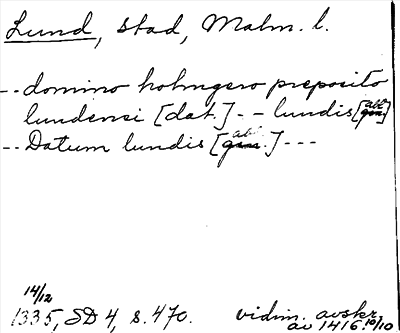 Lund, stad, Malm. l.
-- domino holmgero preposito
lundensi [dat.] -- lundis [abl. gen.]
-- Datum lundis [abl. gen.] ---
14/12
1335, SD 4, s. 470. vidim. avskr.
av 1416 10/10